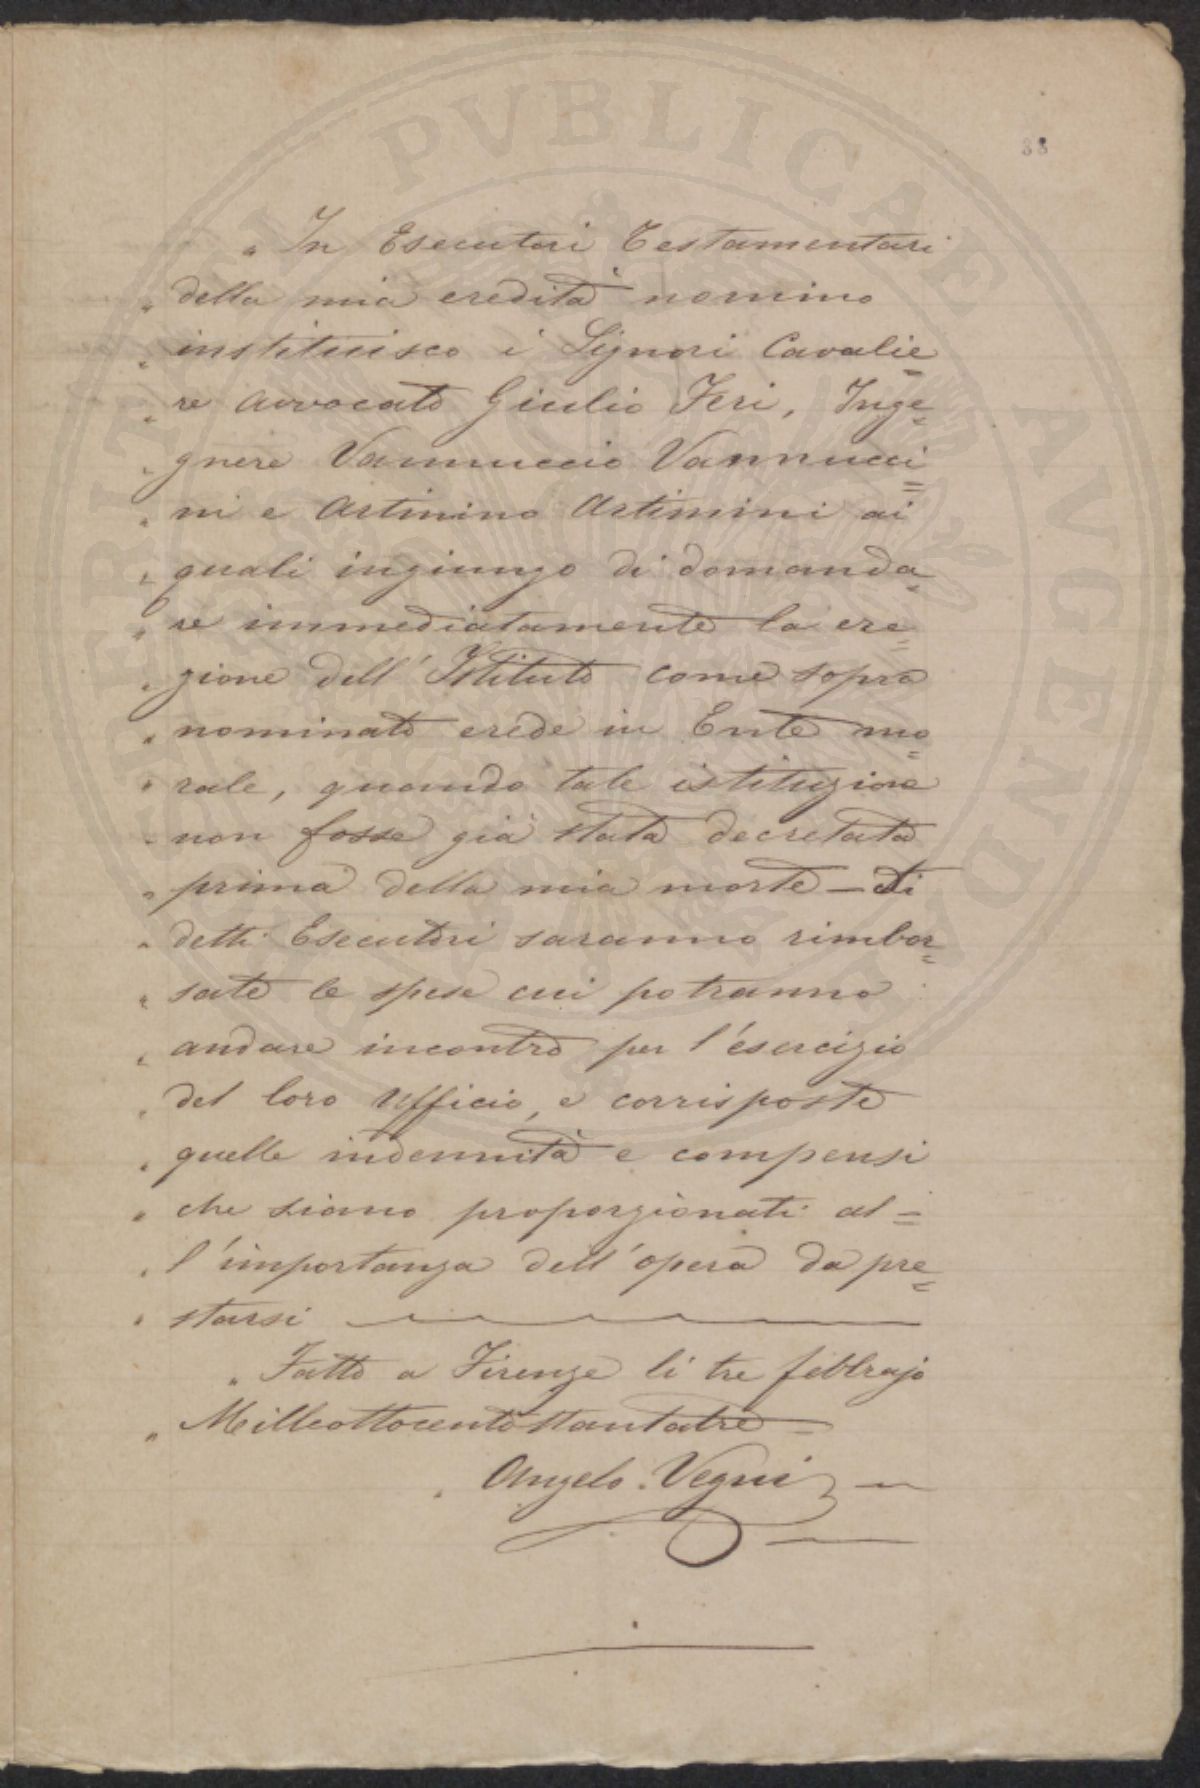 PROSPERITATI PVBLICAE AVGENDAE
88
" In Esecutori Testamentari
" della mia eredità nomino
" instituisco i Signori Cavalie=
" re Avvocato Giulio Feri, Inge=
" gnere Vannuccio Vannucci=
" ni e Artimino Artimini ai
" quali ingiungo di domanda=
" re immediatamente la ere=
" zione dell'Istituto come sopra
" nominato erede in Ente mo=
" rale, quando tale istituzione
" non fosse già stata decretata
" prima della mia morte –
" detti Esecutori saranno rimbor=
" sate le spese cui potranno
" andare incontro per l'esercizio
" del loro Ufficio, e corrisposte
" quelle indennità e compensi
" che siano proporzionati al=
" l'importanza dell'opera da pre=
" starsi
" Fatto a Firenze li tre febbrajo
" Milleottocentottantatre =
" Angelo Vegni